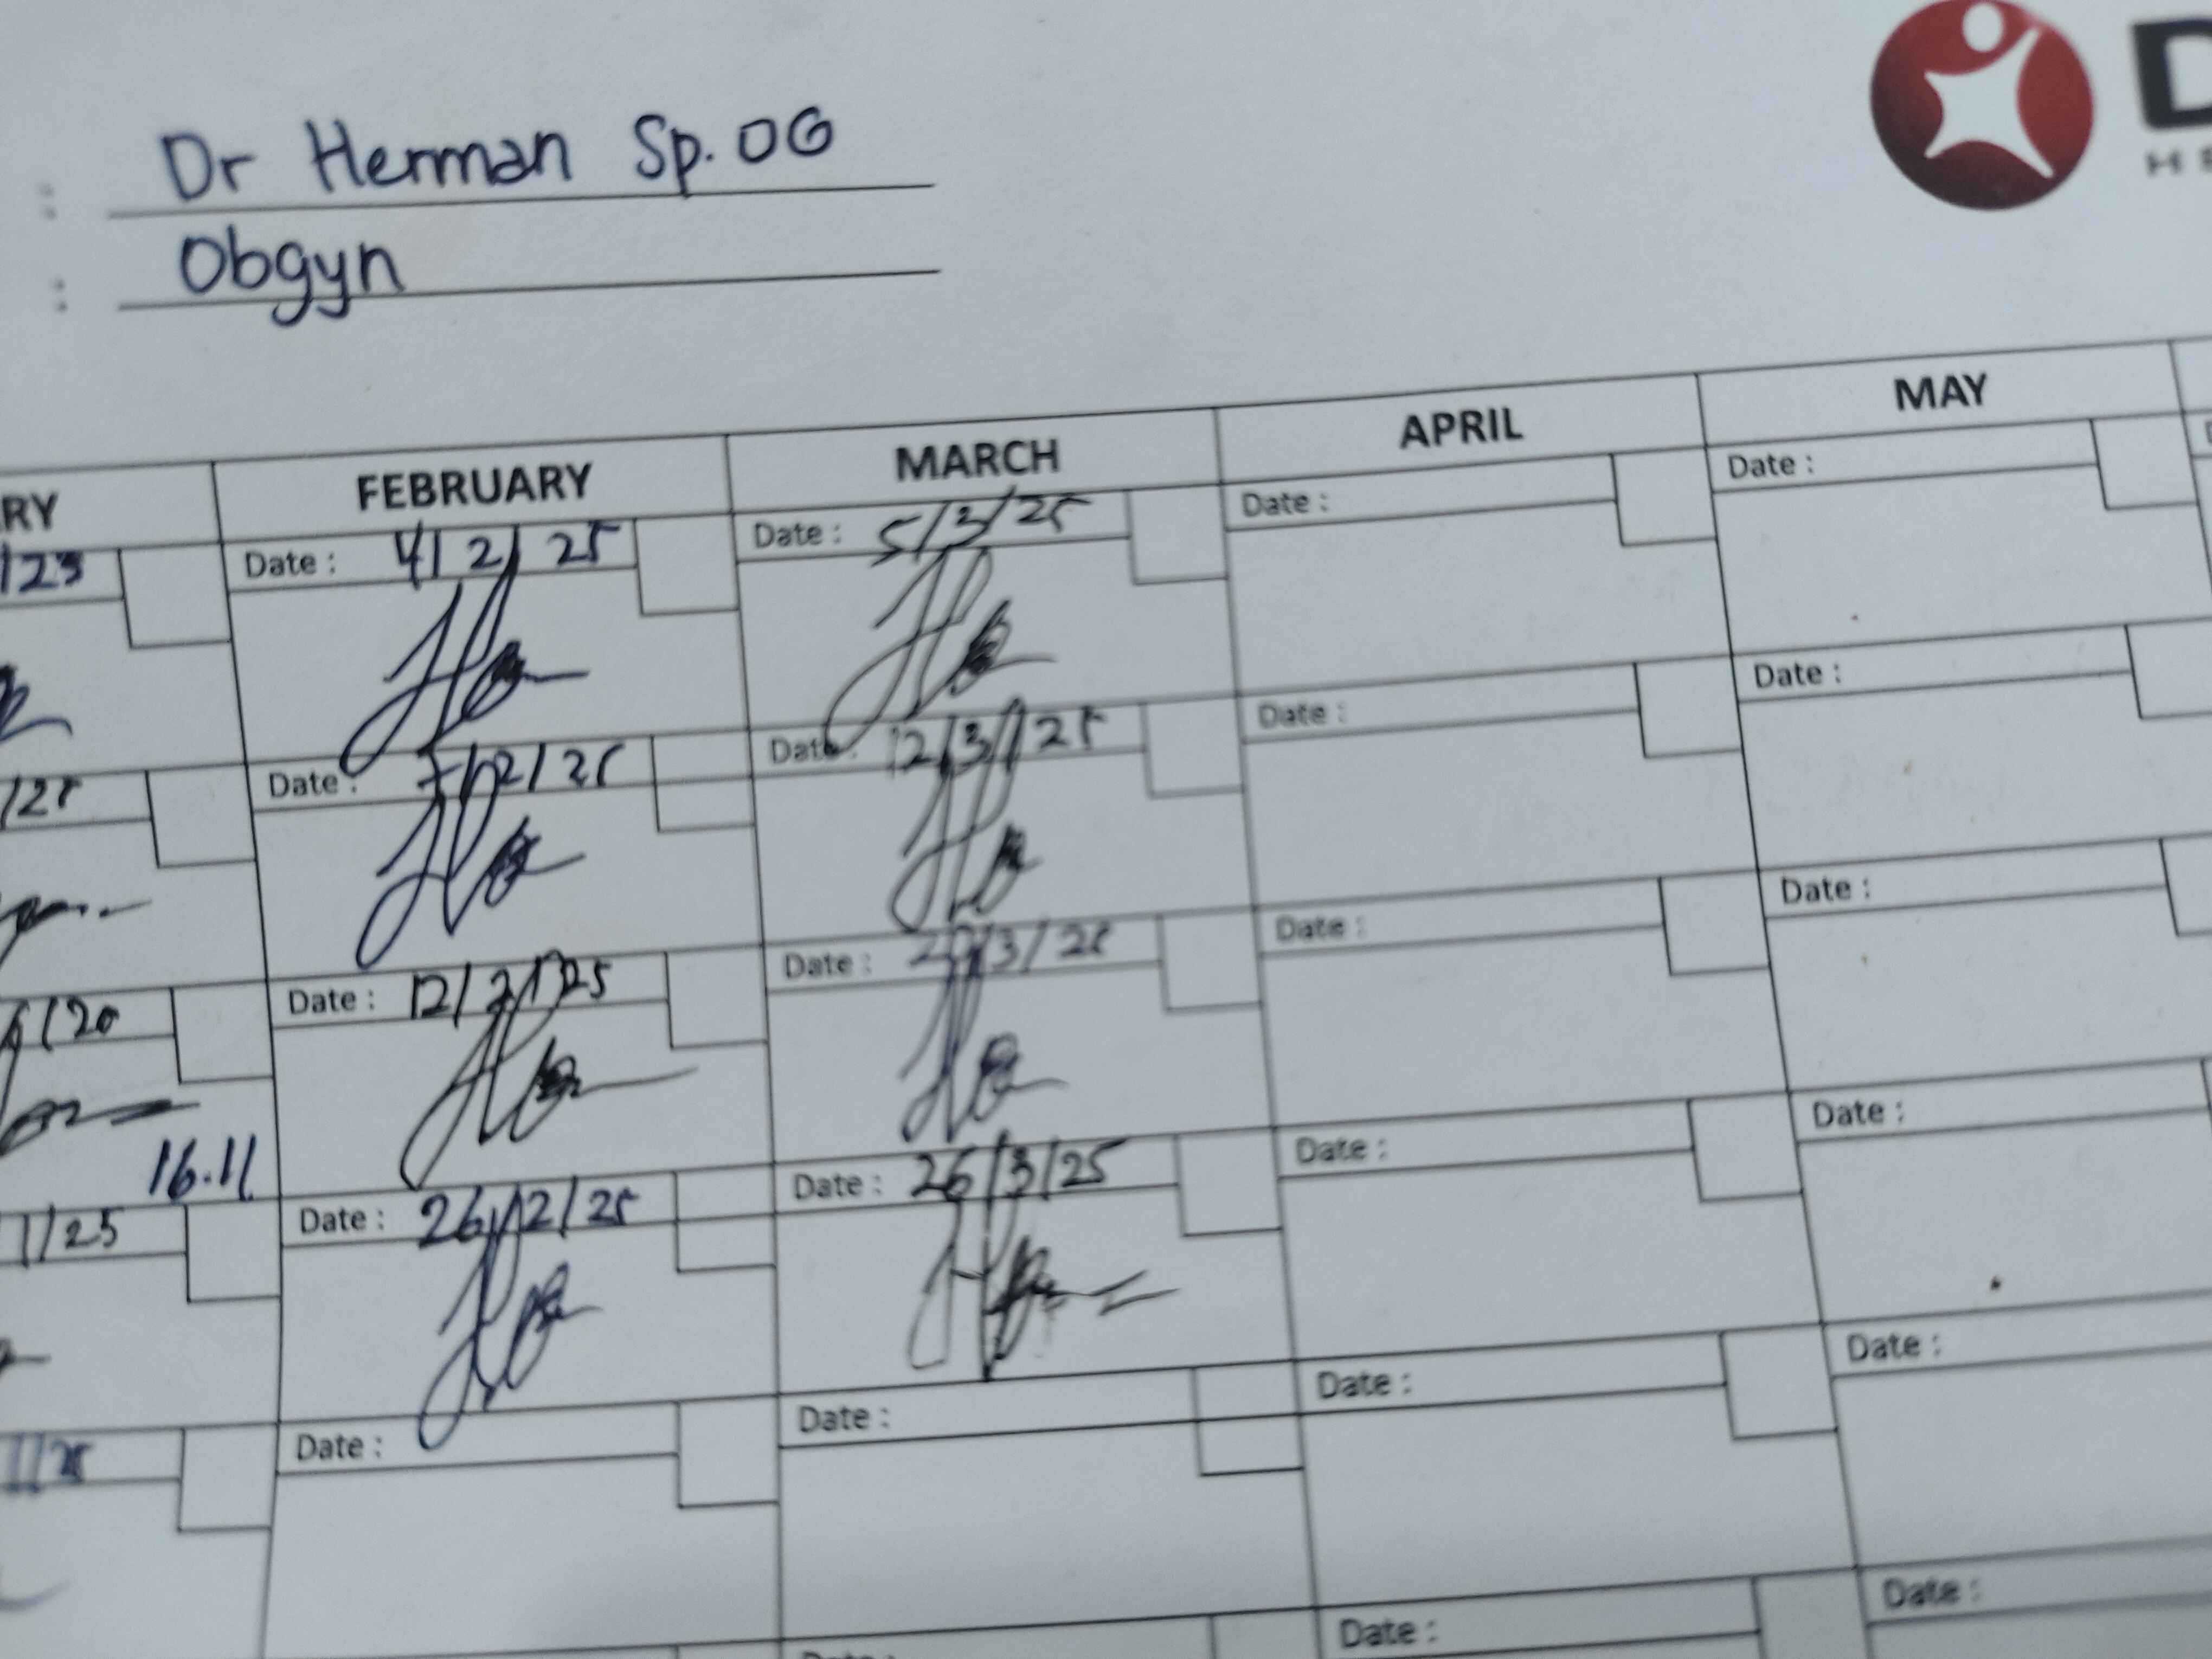 : Dr Herman Sp. OG
D
: Obgyn
RY FEBRUARY MARCH APRIL MAY
/23 Date : 4/2/25 Date : 5/3/25 Date : Date :
/25 Date : 7/2/25 Date : 12/3/25 Date : Date :
/20 Date : 12/2/25 Date : /3/25 Date : Date :
16.11
1/25 Date : 26/2/25 Date : 26/3/25 Date : Date :
1/25 Date : Date : Date : Date :
Date : Date : Date :